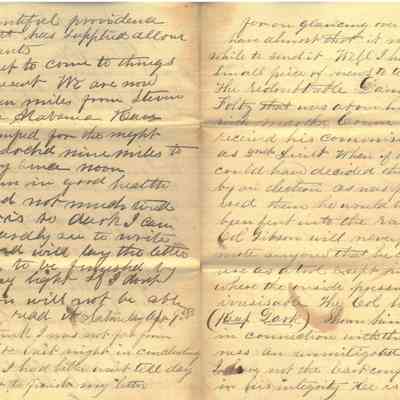 ntiful providence
has supplied all our
ants
et to come to things
resent We are now
en miles from Steven
Alabama Have
mped for the night
arched nine miles to
y since noon
m in good health
d not much tired
is so dark I can
ardly see to write
and will lay the letter
to be finished by
ay light if I dont
u will not be able
read it Saturday Apr 9
I was not far from
last night in concluding
I had better wait till day
to finish my letter
for on glancing over
have almost that it
while to send it Well I h
small piece of news to te
the redoubtable Cam
Foley that was at our h
received his commissi
as 2nd Lieut When if
could have decided th
by an election as was p
and then he would
been put into the ra
Col Gibson will never
mote anyone that he c
use as a tool except
where the outside press
irresistible The Col
(Keep Dark) Shown him
in connection with th
mess an unmitigated
I have not the least conf
in his integrity He is